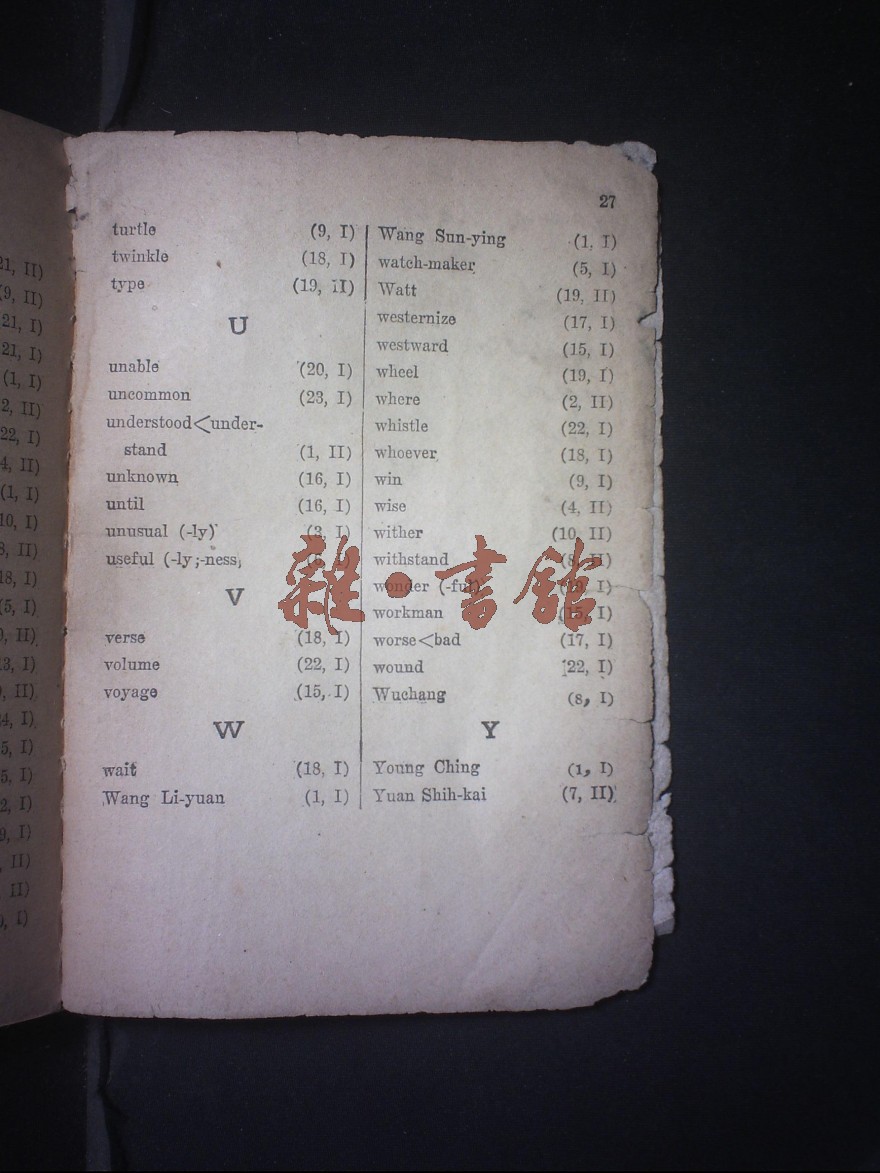 21, II)
(9, II)
21, I)
21, I)
(1, I)
2, II)
22, I)
4, II)
(1, I)
10, I)
8, II)
18, I)
(5, I)
, II)
3, I)
, II)
4, I)
5, I)
5, I)
2, I)
9, I)
, II)
II)
, I)
27
turtle (9, I)
twinkle (18, I)
type (19, II)
U
unable (20, I)
uncommon (23, I)
understood<under-
stand (1, II)
unknown (16, I)
until (16, I)
unusual (-ly) (3, I)
useful (-ly;-ness)
V
verse (18, I)
volume (22, I)
voyage (15, I)
W
wait (18, I)
Wang Li-yuan (1, I)
Wang Sun-ying (1, I)
watch-maker (5, I)
Watt (19, II)
westernize (17, I)
westward (15, I)
wheel (19, I)
where (2, II)
whistle (22, I)
whoever (18, I)
win (9, I)
wise (4, II)
wither (10, II)
withstand (8, II)
wonder (-ful) I)
workman (15, I)
worse<bad (17, I)
wound (22, I)
Wuchang (8, I)
Y
Young Ching (1, I)
Yuan Shih-kai (7, II)
雜·書館